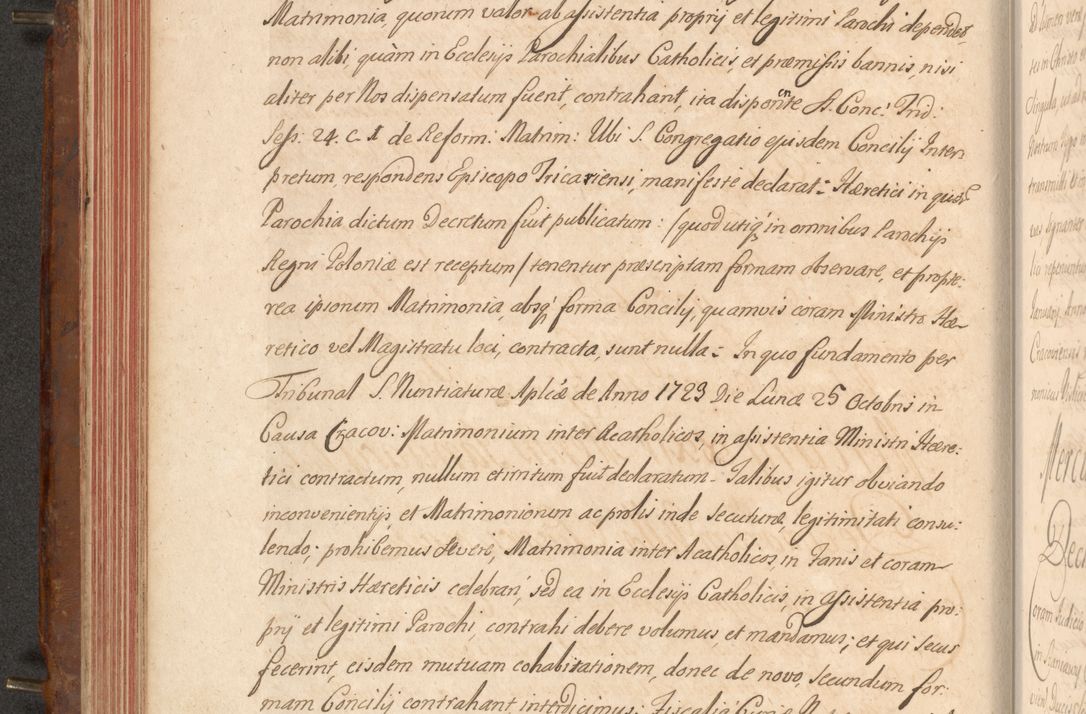 Matrimonia, quorum valor ab assistentia proprij et legitimi Parochi dependet,
non alibi, quàm in Ecclesijs Parochialibus Catholicis, et præmissis bannis, nisi
aliter per Nos dispensatum fuerit, contrahant, ita disponente S. Conc: Trid:
Sess: 24. c. 1 de Reform: Matrim: Ubi S. Congregatio ejusdem Concilij Inter:
pretum, respondens Episcopo Tricariensi, manifeste declarat: Hæretici in quor
Parochia dictum Decretum fuit publicatum: /quod utiq, in omnibus Parochijs
Regni Poloniæ est receptum/ tenentur præscriptam formam observare, et propte:
rea ipsorum Matrimonia, absq, forma Concilij, quamvis coram Ministro Hæ-
retico vel Magistratu loci, contracta, sunt nulla: In quo fundamento per
Tribunal S. Nuntiaturæ Aplicæ de Anno 1723 Die Lunæ 25 Octobris in
Causa Cracov: Matrimonium inter Acatholicos, in assistentia Ministri Hære:
tici contractum, nullum et irritum fuit declaratum. Talibus igitur obviando
inconvenientijs, et Matrimoniorum ac prolis inde secuturæ, legitimitati consu:
lendo; prohibemus severè, Matrimonia inter Acatholicos, in Fanis et coram
Ministris Hæreticis celebrari, sed ea in Ecclesijs Catholicis, in assistentia pro:
prij et legitimi Parochi, contrahi debere volumus, et mandamus; et qui secus
fecerint, eisdem mutuam cohabitationem, donec de novo, secundum for:
mam Concilij contrahant interdicimus: